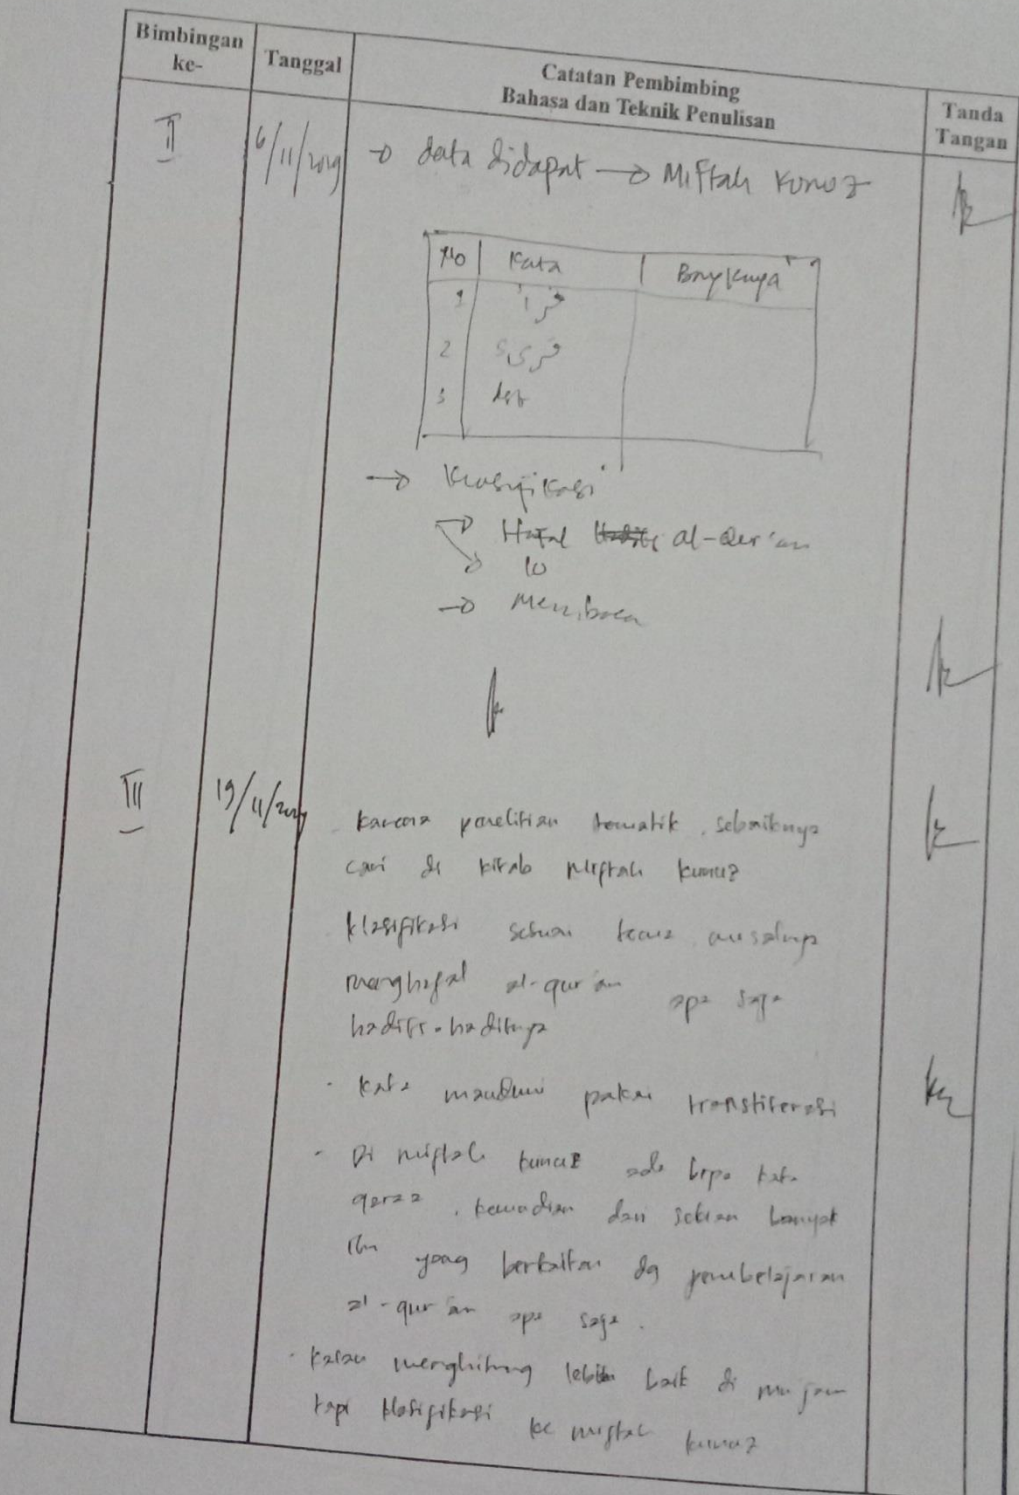 Bimbingan ke-
Tanggal
Catatan Pembimbing
Bahasa dan Teknik Penulisan
Tanda Tangan
II
6/11/2019
→ data didapat → Miftah Kunuz
No | Kata | Banyaknya
1 قرأ
2
3 dst
→ Klasifikasi
→ Hafal al-Qur'an
→ 10
→ Membaca
III
19/11/2019
Karena penelitian tematik, sebaiknya
cari di kitab Miftah Kunuz
klasifikasi sesuai tema misalnya
menghafal al-qur'an apa saja
hadits-haditsnya
- Kata maudhui pakai transliterasi
- Di miftah kunuz ada brpa kata
qaraa, kemudian dari sekian banyak
itu yang berkaitan dg pembelajaran
al-qur'an apa saja.
- Kalau menghitung lebih baik di mu'jam
tapi klasifikasi ke miftah kunuz